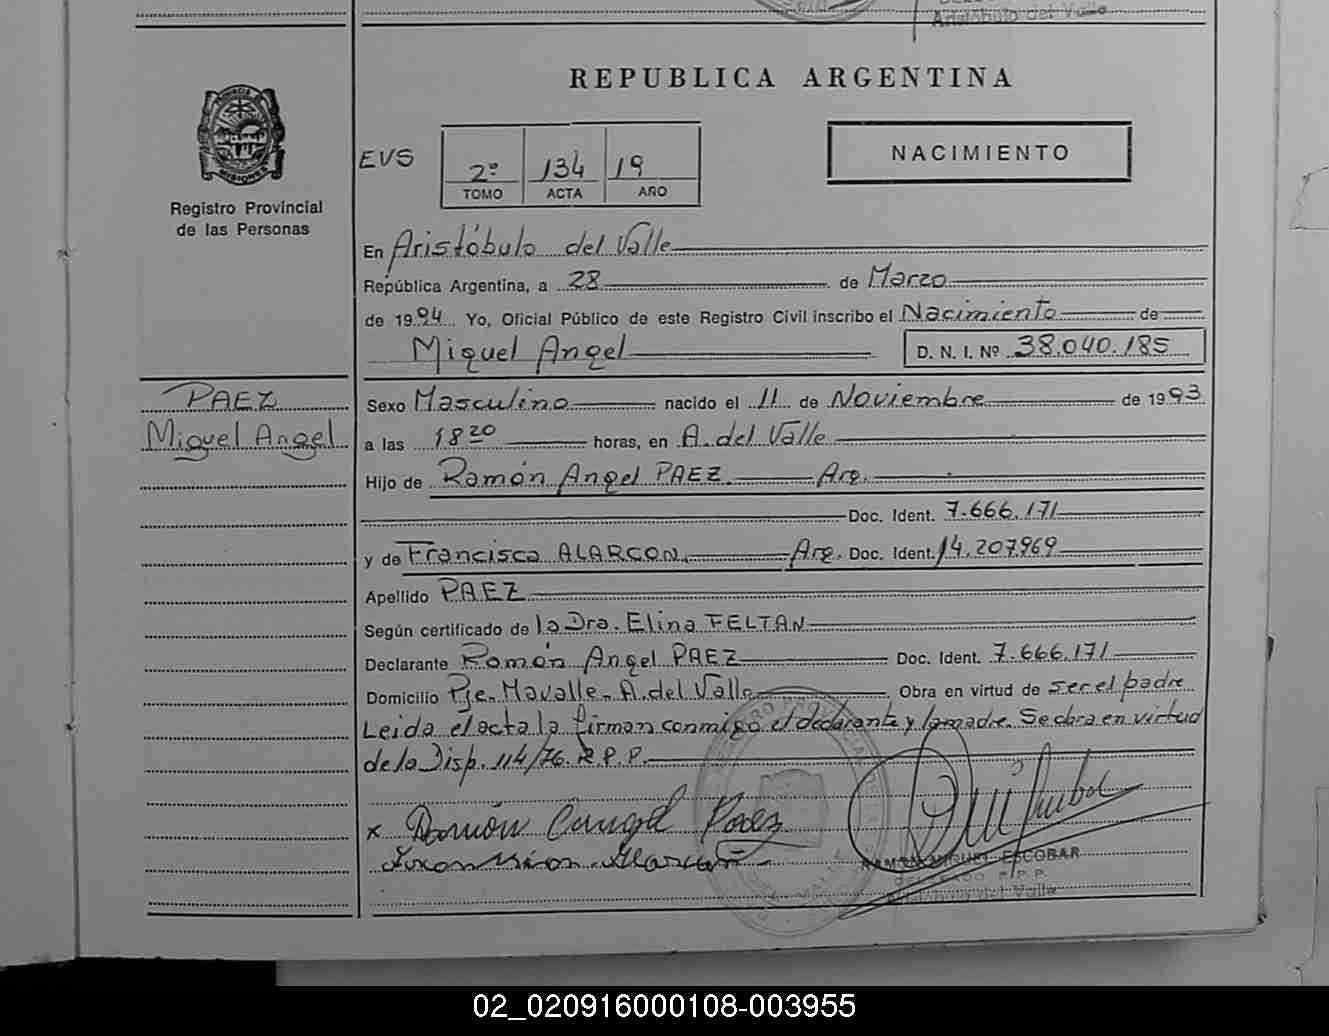 Aristóbulo del Valle
REPUBLICA ARGENTINA
EVS
2º 134 19
TOMO ACTA AÑO
NACIMIENTO
MISIONES
Registro Provincial
de las Personas
En Aristóbulo del Valle
República Argentina, a 28 de Marzo
de 1994 Yo, Oficial Público de este Registro Civil inscribo el Nacimiento de
Miguel Angel D. N. I. Nº 38.040.185
PAEZ
Miguel Angel
Sexo Masculino nacido el 11 de Noviembre de 1993
a las 18 20 horas, en A. del Valle
Hijo de Ramón Angel PAEZ. Arg.
Doc. Ident. 7.666.171
y de Francisca ALARCON. Arg. Doc. Ident. 14.207.969
Apellido PAEZ
Según certificado de la Dra. Elina FELTAN
Declarante Ramón Angel PAEZ Doc. Ident. 7.666.171
Domicilio Pje. Mavalle - A. del Valle Obra en virtud de ser el padre
Leida el acta la firman conmigo el declarante y la madre. Se labra en virtud
de la Disp. 114/76. R.P.P.
x Ramón Angel Paez
Alarcón
RAMON MIGUEL ESCOBAR
DELEGADO R.P.P.
Aristóbulo del Valle
02_020916000108-003955